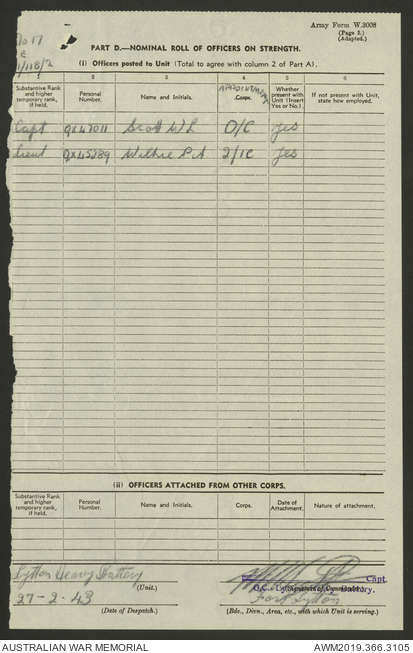 Army Form W.3008
(Page 2.)
(Adapted.)
No 17
1/118/2
PART D.—NOMINAL ROLL OF OFFICERS ON STRENGTH.
(i) Officers posted to Unit (Total to agree with column 2 of Part A).
2 3 4 5 6
Substantive Rank and higher temporary rank, if held. Personal Number. Name and Initials. APPOINTMENT Corps. Whether present with Unit (Insert Yes or No). If not present with Unit, state how employed.
Capt QX47011 Scott W L O/C yes
Lieut QX45289 Wilkie P A 2/IC yes
(ii) OFFICERS ATTACHED FROM OTHER CORPS.
Substantive Rank and higher temporary rank, if held. Personal Number. Name and Initials. Corps. Date of Attachment. Nature of attachment.
Lytton Heavy Battery
(Unit.)
Capt.
O.C. Lytton Heavy Battery.
27-2-43
Fort Lytton
(Date of Despatch.)
(Bde., Divn., Area, etc., with which Unit is serving.)
AUSTRALIAN WAR MEMORIAL
AWM2019.366.3105